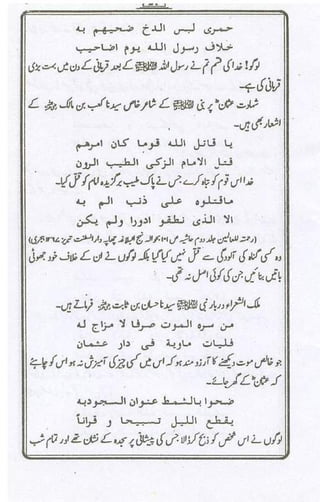 حمری لبس الدخ ضحیھم بہ
خلاف رسول اللہ یوم اضاحیب
لوگو! خدا کی قسم تم نے رسول اللہ ﷺ کے بعد قربانی کے دن میں بہت بڑی
قربانی کی ہے۔
شہادت عثمانؓ پر نبی ﷺ کے شاعر خاص سیدنا کعب بن مالک ؓ کے
اشعار بھی ہیں۔
یا قاتل اللہ قوما کان امرھم
قتل الامام الزکی الطیب الرون
خدا اس قوم کو تباہ کرے جس نے پاک طیب برگزیدہ امام کو قتل کیا۔
ماقتلوہ علی ذنب الم بہ
الا الذی نطقو ادورا ولم یکن
(رحمتہ للعالمین جلد دوم حاشیہ ص بحوالہ نہج البلاغہ چھاپہ دار السلطنت تبریز ہجری)
وہ کسی گناہ کی آلودگی سے قتل نہیں کیا گیا بلکہ لوگوں نے ان کے خلاف خود جھوٹی
باتیں بنائیں جن کی کوئی اصل نہ تھی۔
ملک الشعراء دربار نبی ﷺ سیدنا حسان بن ثابت ؓ فرماتے ہیں۔
من سرہ الموت صرفا لا مزاج لہ
فلیات ماوبة فی دار عثمان
جو خالص موت دیکھنے کا آرزو مند ہو کہ اس میں کسی چیز کی آمیزش نہ ہو اس کو چاہئے
کہ عثمانؓ کے گھر جائے۔
ضحوا بالشمط عنوان السجودبہ
یقطع اللیل تسبیحا و قرآناً
لوگوں نے اس شخص کو ذبح کر ڈالا جس کی پیشانی پر سجدہ کے نشان تھے اور تمام شب